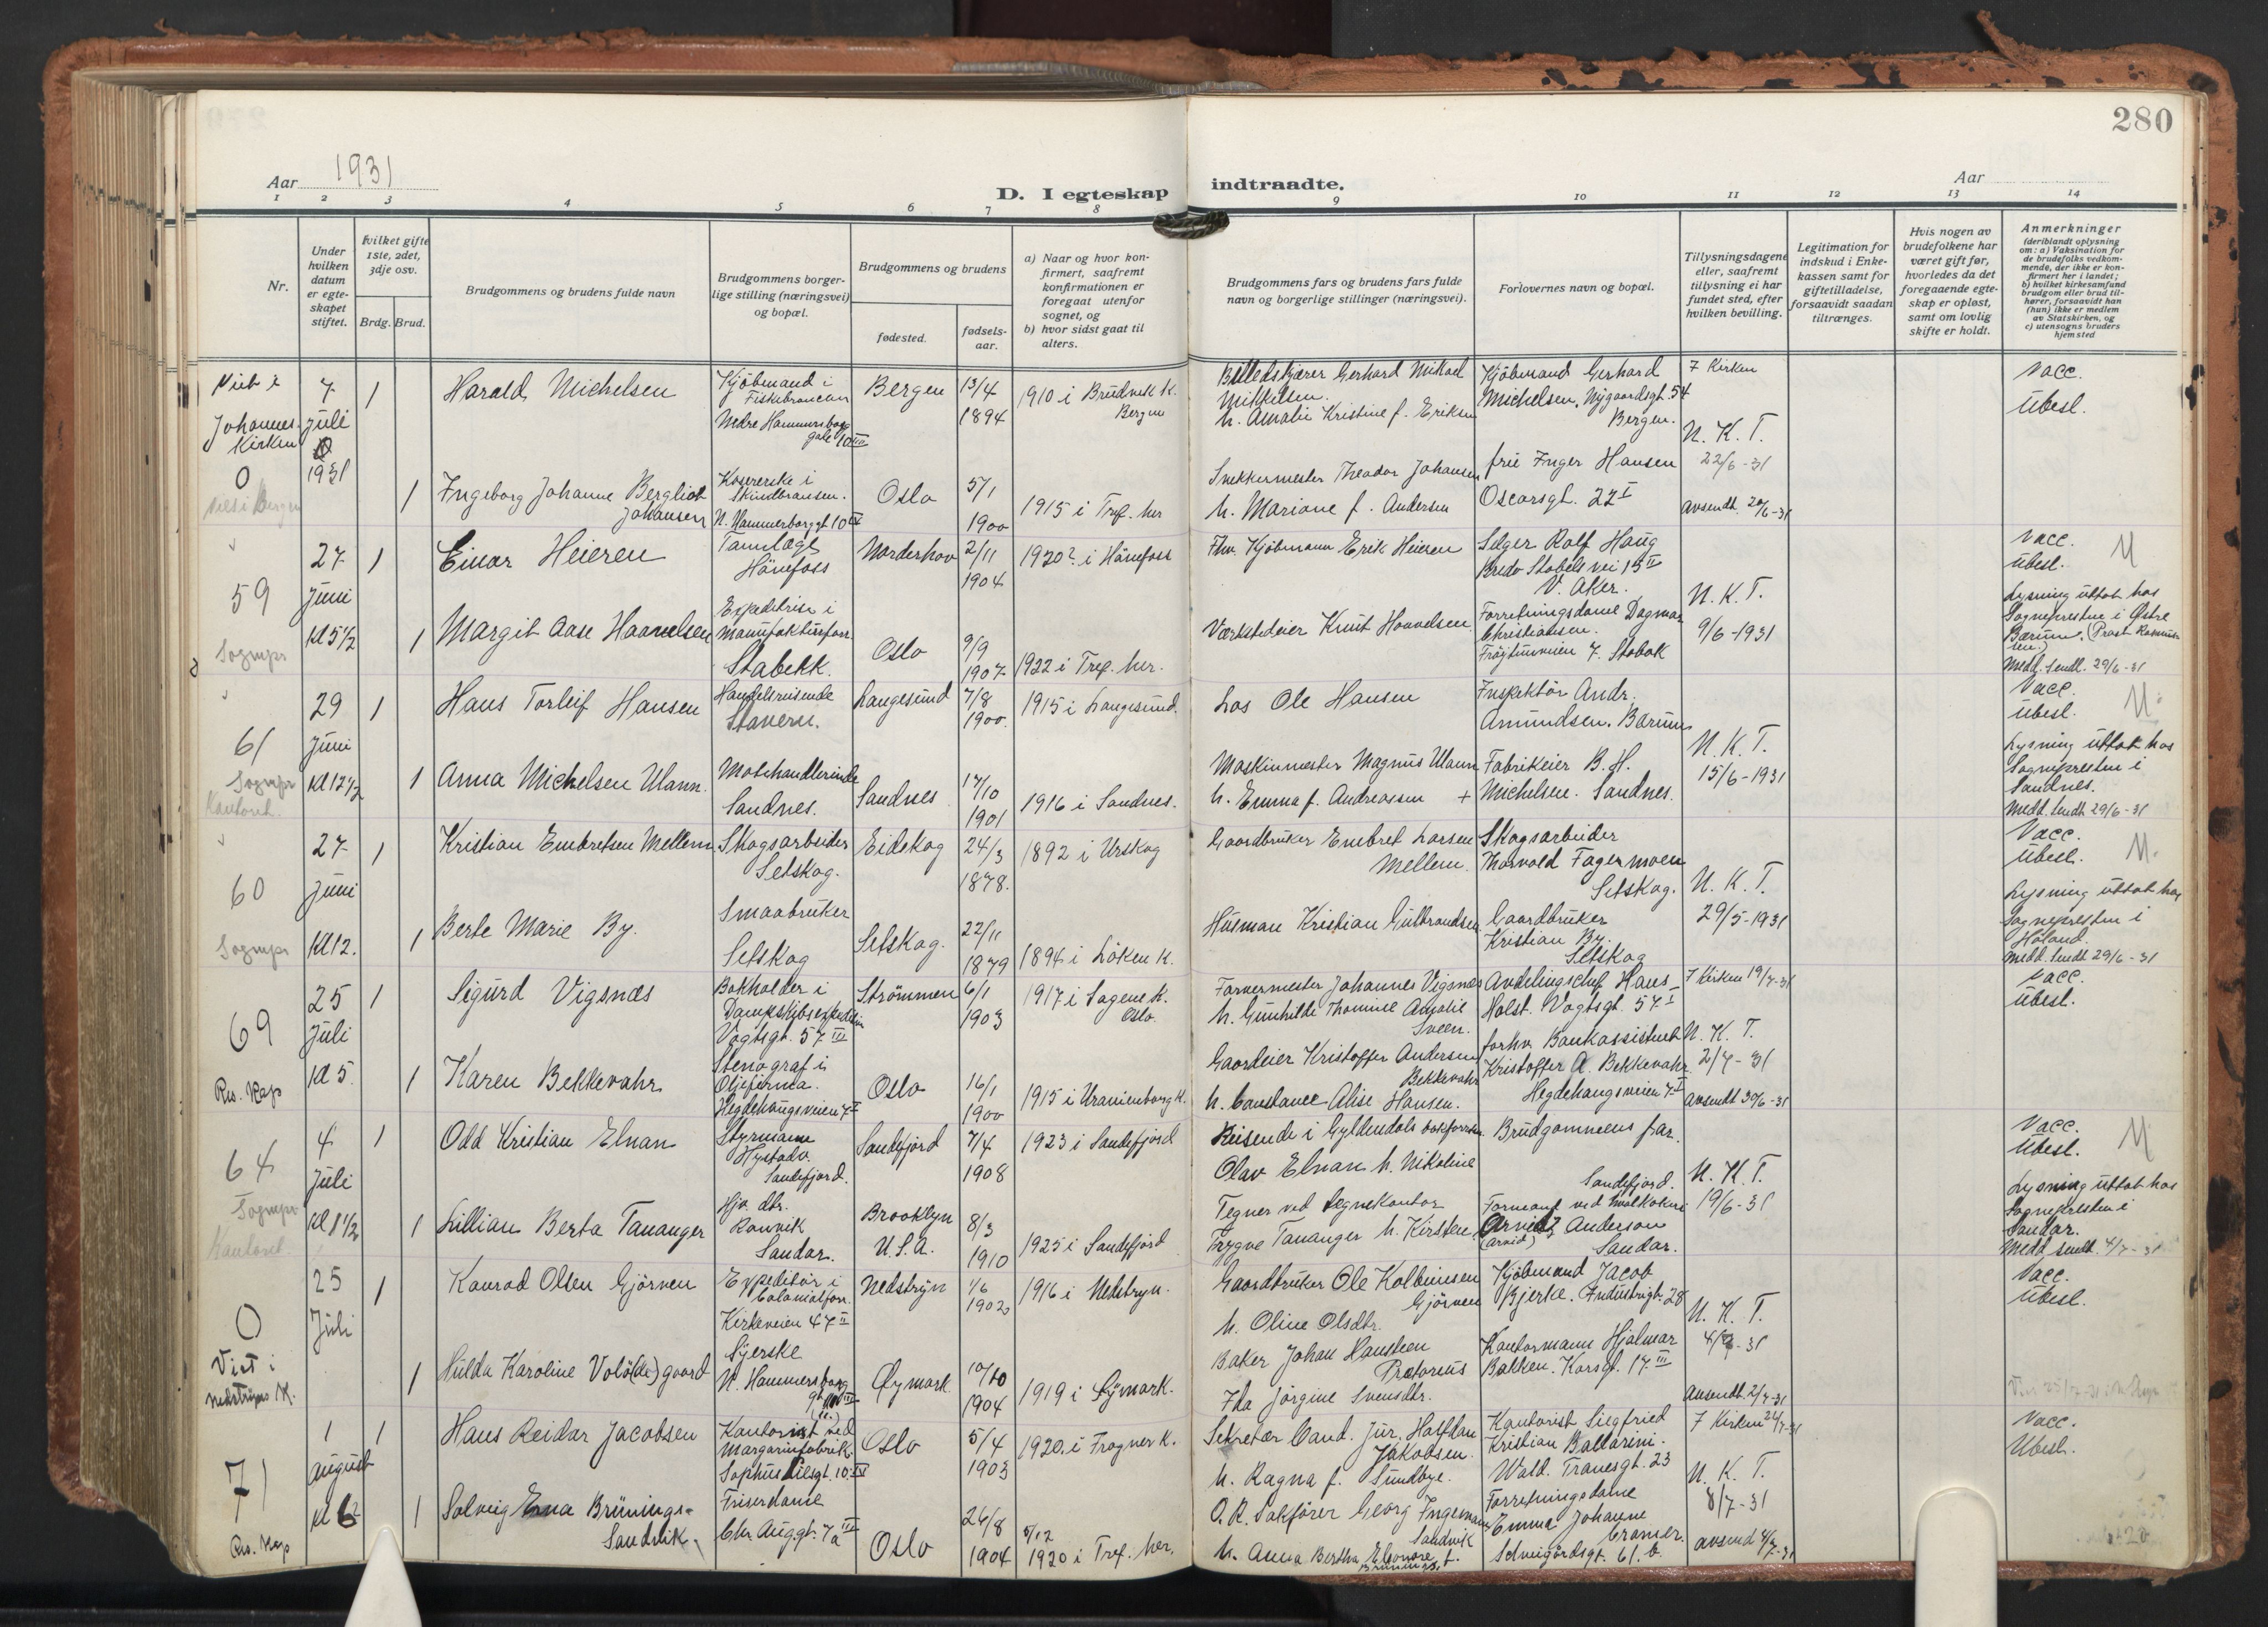 280
Aar 1931
D. I egteskap indtraadte.
Aar
1 2 3 4 5 6 7 8 9 10 11 12 13 14
Nr.
Under hvilken datum er egteskapet stiftet.
Hvilket gifte 1ste, 2det, 3dje osv.
Brdg. Brud.
Brudgommens og brudens fulde navn
Brudgommens borgerlige stilling (næringsvei) og bopæl.
Brudgommens og brudens
fødested.
fødselsaar.
a) Naar og hvor konfirmert, saafremt konfirmutionen er foregaat utenfor sognet, og
b) hvor sidst gaat til alters.
Brudgommens fars og brudens fars fulde navn og borgerlige stillinger (næringsvei).
Forlovernes navn og bopæl.
Tillysningsdagene eller, saafremt tillysning ei har fundet sted, efter hvilken bevilling.
Legitimation for indskud i Enkekassen samt for giftetilladelse, forsaavidt saadan tiltrænges.
Hvis nogen av brudefolkene har været gift før, hvorledes da det foregaaende egteskap er opløst, samt om lovlig skifte er holdt.
Anmerkninger
(deriblandt oplysning om: a) Vaksination for de brudefolks vedkommende, der ikke er konfirmert her i landet; b) hvilket kirkesamfund brudgom eller brud tilhører, forsaavidt han (hun) ikke er medlem av Statskirken, og c) utensogns bruders hjemsted
Viet i Johannes Kirken
0
7 juli 1931
1
Harald Michelsen
Kjöbmand i Fiskebranchen
Nedre Hammersborg gate 10 III
Bergen
13/4 1894
1910 i Brudvik K. Bergen
Billedskjærer Gerhard Mikael Mikkelsen
h. Amalie Kristine f. Eriksen
Kjöbmand Gerhard Michelsen, Nygaardsgt. 54 Bergen.
7 Kirken
Vacc.
Ubesl.
1
Ingeborg Johanne Bergliot Johansen
Kasererske i Skindbransen.
N. Hammerborggt 10 III
Oslo
5/1 1900
1915 i Tref. her
Snekkermester Theodor Johansen
h. Mariane f. Andersen
frü Inger Hansen
Oscarsgt. 22 I
N. K. T.
22/6-31
avsendt. 20/6-31
59
Sogmpr
27 Juni Kl 5 1/2
1
Einar Heieren
Tandlæge Hönefoss
Norderhov
2/11 1904
1920? i Hönefoss
Fhv. Kjöbmann Erik Heieren
Selger Rolf Haug
Bredo Stabels vei 15 II
V. Aker.
Vacc.
Ubesl.
1
Margit Aase Haavelsen
Expeditrise i Manufakturforr.
Stabekk.
Oslo
9/9 1907
1922 i Tref. her.
Værkstedeier Knut Haavelsen
Forretningsdame Dagmar Christiansen.
N. K. T.
9/6-1931
Lysning uttat hos Sogneprestne i Östre Bærum.
Medd. Sendt. 29/6-31
61
Sogmpr Kontoret.
29 Juni Kl 12 1/2
1
Hans Torleif Hansen
Handelsreisende Stavern.
Langesund
7/8 1900.
1915 i Langesund.
Los Ole Hansen
Inspektör Andr. Amundsen. Bærum
Vacc.
Ubesl.
1
Anna Michelsen Ulann.
Motehandlerinde Sandnes.
Sandnes
17/10 1901
1916 i Sandnes.
Maskinmester Magnus Ulann
h. Emma f. Andreassen +
Fabrikeier B. H. Michelsen. Sandnes.
N. K. T.
15/6-1931
Lysning uttat hos Sogneprestn i Sandnes.
Medd. Sendt 29/6-31
60
Sogmpr
27 Juni Kl 12.
1
Kristian Embretsen Mellem
Skogsarbeider Setskog.
Eidskog
24/3 1878.
1892 i Urskog
Gaardbruker Embret Larsen Mellem.
Skogsarbeider Thorvald Fagermoen Setskog.
Vacc.
Ubesl.
1
Berte Marie By.
Smaabruker Setskog
Setskog.
22/11 1879
1894 i Löken K.
Husman Kristian Gulbrandsen
Gaardbruker Kristian By. Setskog
N. K. T.
29/5-1931
Lysning uttat hos Sogneprestn i Höland.
Medd. Sendt 29/6-31
69
Res. Kap
25 Juli Kl 5.
1
Sigurd Vigsnæs
Bokholder i Dampskibsexpedition
Vogtsgt. 57 III
Strömmen
6/1 1903
1917 i Sagene K. Oslo.
Farvermester Johannes Vigsnæs
h. Gunhilde Thomine Amalie Sveen.
Avdelingschef Hans Holst. Vogtsgt. 57 I
7 Kirken 19/7-31
Vacc.
Ubesl.
1
Karen Bekkevahr
Stenograf i Oljefirma.
Hegdehaugsveien 7 I
Oslo
16/1 1900
1915 i Uranienborg K.
Gaardeier Kristoffer Andersen Bekkevahr
h. Constance Alise Hansen.
forhv. Bankassistent Kristoffer A. Bekkevahr
Hegdehaugsveien 7 I
N. K. T.
2/7-31
avsendt 30/6-31
64
Sogmpr Kontoret.
4 Juli Kl 1 1/2
1
Odd Kristian Elnan
Styrmann
Sandefjord.
Sandefjord
7/4 1908
1923 i Sandefjord
Reisende i Gyldendals bokforretn.
Olav Elnan h. Nikoline
Brudgommens far. Sandefjord.
Vacc.
Ubesl.
1
Lillian Berta Tananger
Hjv. dtr. Ranvik Sandar.
Brooklyn U.S.A.
8/3 1910
1925 i Sandefjord
Tegner ved tegnekontor
Trygve Tananger h. Kirsten
Formand ved
(Arvid) Anderson Sandar.
N. K. T.
19/6-31
Lysning uttat hos Sogneprestn i Sandar.
Medd. sendt. 4/7-31
0
Viet i Nedstryns K.
25 Juli
1
Konrad Olsen Gjörven
Expeditör i Colonialforr.
Kirkeveien 47 II
Nedstryn
1/6 1902
1916 i Nedstryn.
Gaardbruker Ole Kolbeinsen Gjörven
h. Oline Olsdtr.
Kjöbmand Jacob Bjerke. Industrigt. 28
Vacc.
Ubesl.
1
Hulda Karoline Volö(de)gaard
Syerske
N. Hammersborg
Öymark
10/10 1904
1919 i Öymark.
Baker Johan Hansteen Pretorius
Ida Jörgine Svensdtr.
Kontormann Hjalmar Bakken. Korsgt. 17 III
N. K. T.
avsendt. 2/7-31
71
Res. Kap
1 August Kl 6
1
Hans Reidar Jacobsen
Kontorist ved Margarinfabrik
Sophus Liesgt. 10 IV
Oslo
5/4 1903
1920 i Frogner K.
Sekretær Cand. Jur. Halfdan Jakobsen.
h. Ragna f. Sundbye.
Kontorist Siegfried Kristian Ballarini.
Wald. Tranesgt. 23
7 Kirken 26/7-31
Vacc.
Ubesl.
1
Solveig Erna Brünings-Sandvik
Friserdame
Chr. Auggt. 7a III
Oslo
26/8 1904
5/12 1920 i Tref. her.
O. R. Sakförer Georg Ingemann Sandvik
h. Anna Bertha Eleonore f. Brünings.
Forretningsdame Emma Johanne Cramer.
Schweigårdsgt. 61. b.
N. K. T.
8/7-31
avsend 4/7-31